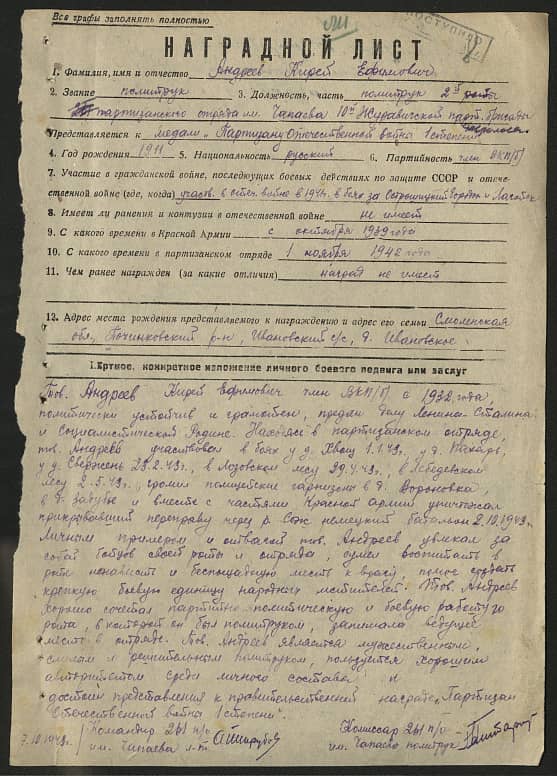 Все графы заполнять полностью
ПОСТУПИЛО
НАГРАДНОЙ ЛИСТ
1. Фамилия, имя и отчество Андреев Кирей Ефимович
2. Звание политрук 3. Должность, часть политрук 2й роты
партизанского отряда им. Чапаева 10й Журавичской парт. бригады
Представляется к медали „Партизану Отечественной войны 1 степени"
4. Год рождения 1911 5. Национальность русский 6. Партийность член ВКП(б)
7. Участие в гражданской войне, последующих боевых действиях по защите СССР и отече-
ственной войне (где, когда) участв. в отеч. войне в 1941г. в боях за Острошицкий Городок и
8. Имеет ли ранения и контузии в отечественной войне не имеет
9. С какого времени в Красной Армии с октября 1939 года
10. С какого времени в партизанском отряде 1 ноября 1942 года
11. Чем ранее награжден (за какие отличия) наград не имеет
12. Адрес места рождения представляемого к награждению и адрес его семьи Смоленская
обл, Починковский р-н, Ивановский с/с, д. Ивановское
I. Кртное, конкретное изложение личного боевого подвига или заслуг
Тов. Андреев Кирей Ефимович член ВКП/б/ с 1932 года,
политически устойчив и грамотен, предан делу Ленина-Сталина
и Социалистической Родине. Находясь в партизанском отряде,
тов. Андреев участвовал в боях у д. Хвощ 1.1.43г., у д.
у д. Свержень 23.2.43г., в Лозовском лесу 29.4.43г., в Лебедевском
лесу 2.5.43г., громил полицейские гарнизоны в д. Вороновка,
в д. Забузье и вместе с частями Красной армии уничтожал
прикрывавший переправу через р. Сож немецкий батальон 2.10.1943г.
Личным примером и отвагой тов. Андреев увлекал за
собой бойцов своей роты и отряда, сумел воспитать в
роте ненависть и беспощадную месть к врагу, помог создать
крепкую боевую единицу народных мстителей. Тов. Андреев
хорошо сочетал партийно-политическую и боевую работу го
рота, в которой он был политруком, занимала ведущее
место в отряде. Тов. Андреев является мужественным,
смелым и решительным политруком, пользуется хорошим
авторитетом среди личного состава и
достоин представления к правительственной награде „Партизан
Отечественной войны 1 степени".
Командир 261 п/о
Комиссар 261 п/о
7.10.1943г. им. Чапаева л-т
им. Чапаева политрук